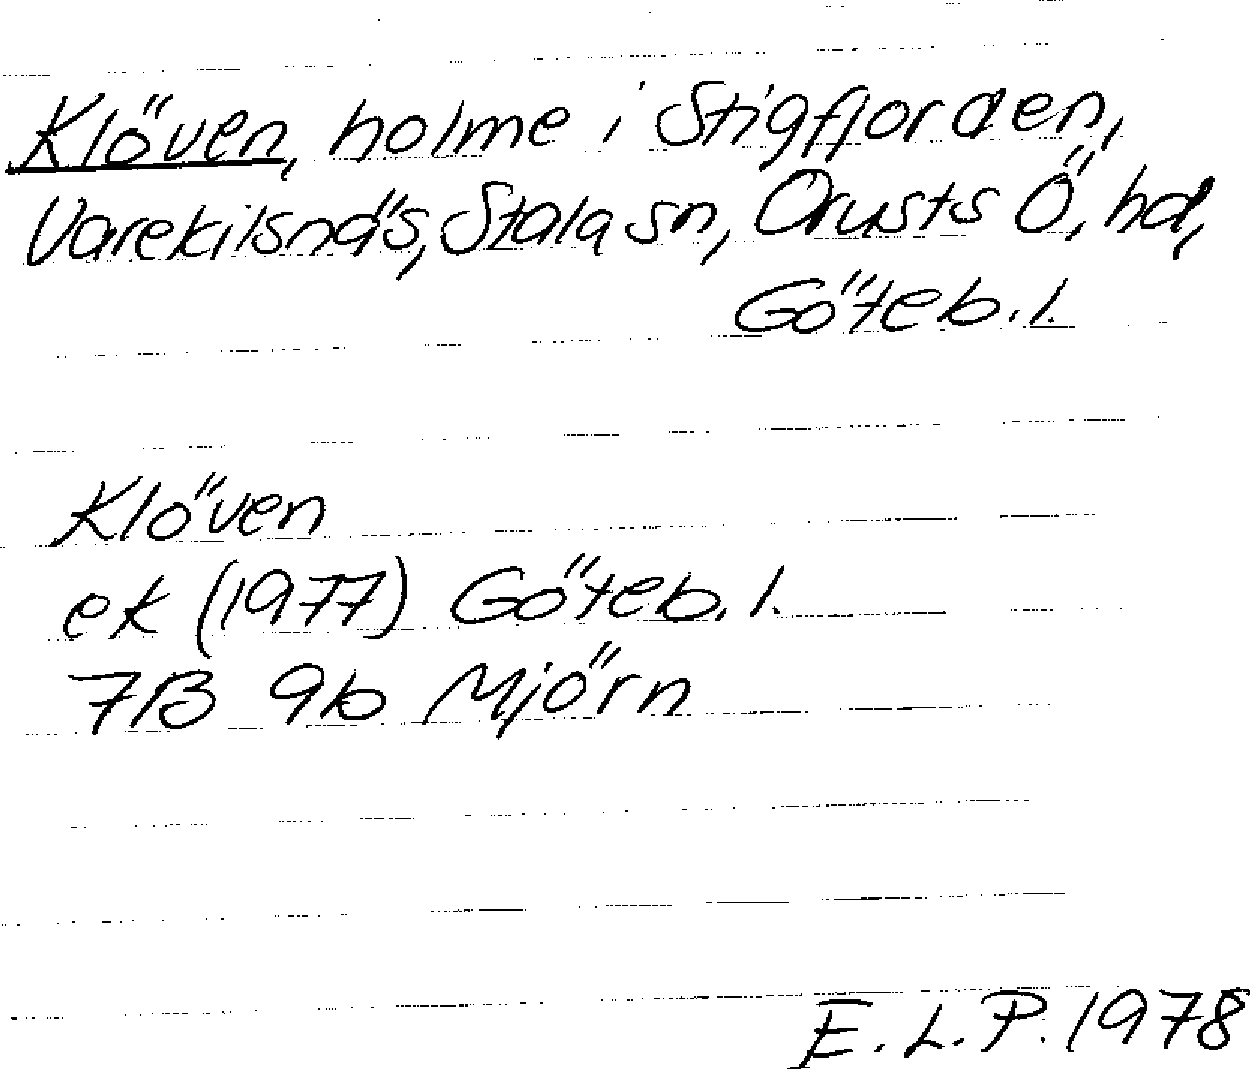 Klöven, holme i Stigfjorden,
Varekilsnäs, Stala sn, Orusts Ö, hd,
Göteb. l.
Klöven
ek (1977) Göteb. l.
7B 9b Mjörn
E. L. P. 1978